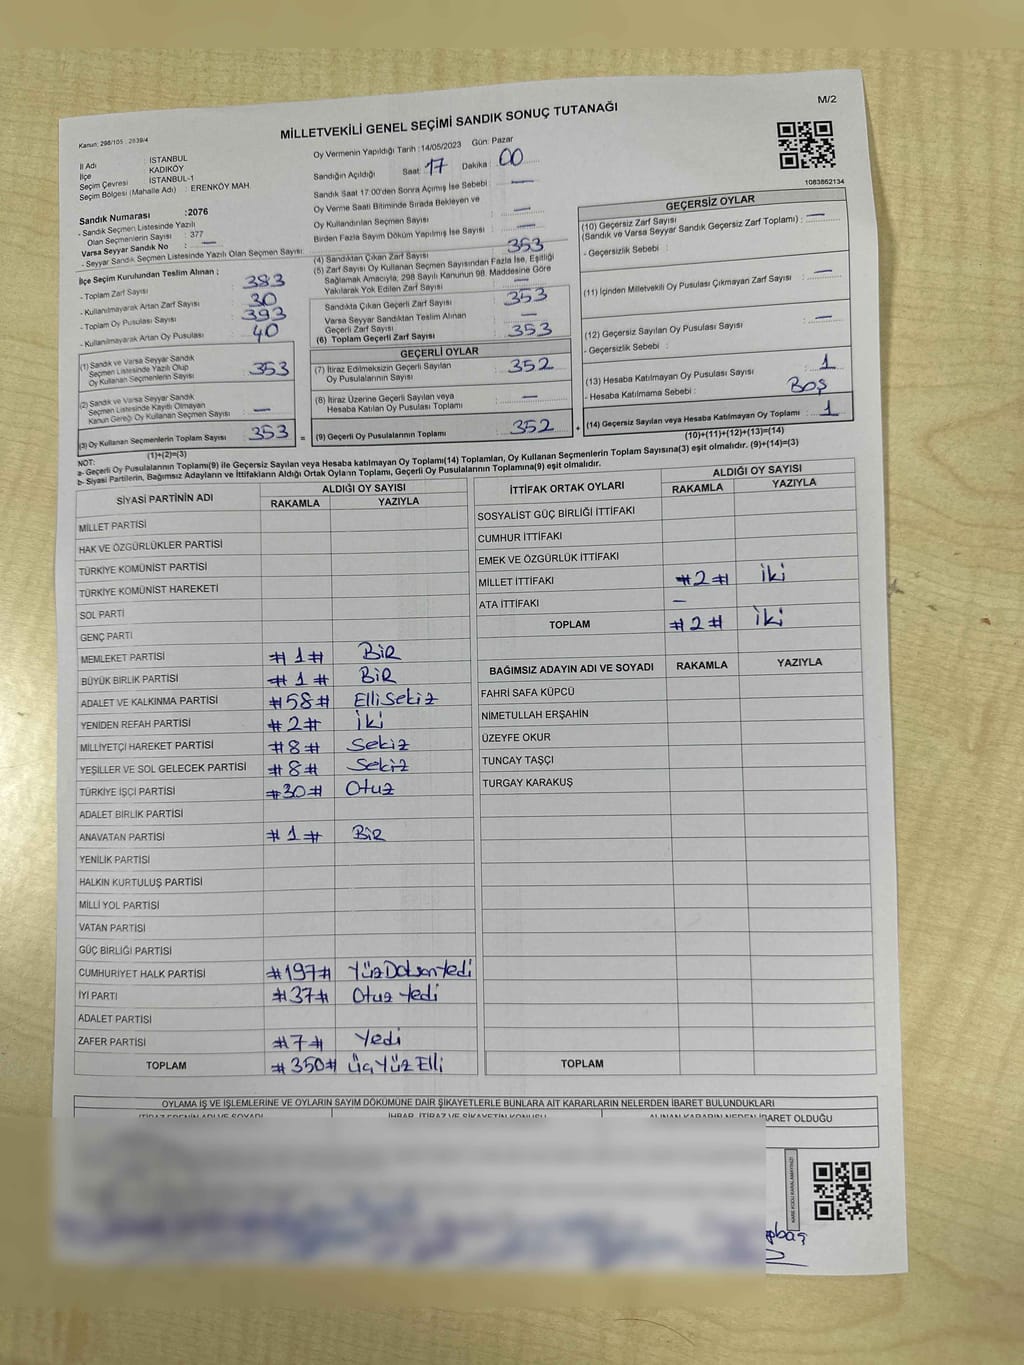 M/2
MİLLETVEKİLİ GENEL SEÇİMİ SANDIK SONUÇ TUTANAĞI
Kanun: 298/105 : 2839/4
İl Adı : İSTANBUL
İlçe : KADIKÖY
Seçim Çevresi : İSTANBUL-1
Seçim Bölgesi (Mahalle Adı) : ERENKÖY MAH.
Sandık Numarası :2076
- Sandık Seçmen Listesinde Yazılı
Olan Seçmenlerin Sayısı : 377
Varsa Seyyar Sandık No : —
- Seyyar Sandık Seçmen Listesinde Yazılı Olan Seçmen Sayısı:
Oy Vermenin Yapıldığı Tarih :14/05/2023 Gün: Pazar
Sandığın Açıldığı Saat: 17 Dakika : 00
Sandık Saat 17:00'den Sonra Açımış İse Sebebi : —
Oy Verme Saati Bitiminde Sırada Bekleyen ve
Oy Kullandırılan Seçmen Sayısı : —
Birden Fazla Sayım Döküm Yapılmış İse Sayısı : —
1083862134
İlçe Seçim Kurulundan Teslim Alınan ;
- Toplam Zarf Sayısı : 383
- Kullanılmayarak Artan Zarf Sayısı : 30
- Toplam Oy Pusulası Sayısı : 393
- Kullanılmayarak Artan Oy Pusulası : 40
(1) Sandık ve Varsa Seyyar Sandık
Seçmen Listesinde Yazılı Olup
Oy Kullanan Seçmenlerin Sayısı : 353
(2) Sandık ve Varsa Seyyar Sandık
Seçmen Listesinde Kayıtlı Olmayan
Kanun Gereği Oy Kullanan Seçmen Sayısı : —
(3) Oy Kullanan Seçmenlerin Toplam Sayısı : 353
(1)+(2)=(3)
(4) Sandıktan Çıkan Zarf Sayısı : 353
(5) Zarf Sayısı Oy Kullanan Seçmen Sayısından Fazla İse, Eşitliği
Sağlamak Amacıyla, 298 Sayılı Kanunun 98. Maddesine Göre
Yakılarak Yok Edilen Zarf Sayısı : —
Sandıkta Çıkan Geçerli Zarf Sayısı : 353
Varsa Seyyar Sandıktan Teslim Alınan
Geçerli Zarf Sayısı : —
(6) Toplam Geçerli Zarf Sayısı : 353
GEÇERLİ OYLAR
(7) İtiraz Edilmeksizin Geçerli Sayılan
Oy Pusulalarının Sayısı : 352
(8) İtiraz Üzerine Geçerli Sayılan veya
Hesaba Katılan Oy Pusulası Toplamı : —
= (9) Geçerli Oy Pusulalarının Toplamı : 352 +
GEÇERSİZ OYLAR
(10) Geçersiz Zarf Sayısı
(Sandık ve Varsa Seyyar Sandık Geçersiz Zarf Toplamı) : —
- Geçersizlik Sebebi :
(11) İçinden Milletvekili Oy Pusulası Çıkmayan Zarf Sayısı : —
(12) Geçersiz Sayılan Oy Pusulası Sayısı : —
- Geçersizlik Sebebi :
(13) Hesaba Katılmayan Oy Pusulası Sayısı : 1
- Hesaba Katılmama Sebebi : BOŞ
(14) Geçersiz Sayılan veya Hesaba Katılmayan Oy Toplamı : 1
(10)+(11)+(12)+(13)=(14)
NOT:
a- Geçerli Oy Pusulalarının Toplamı(9) ile Geçersiz Sayılan veya Hesaba katılmayan Oy Toplamı(14) Toplamları, Oy Kullanan Seçmenlerin Toplam Sayısına(3) eşit olmalıdır. (9)+(14)=(3)
b- Siyasi Partilerin, Bağımsız Adayların ve İttifakların Aldığı Ortak Oyların Toplamı, Geçerli Oy Pusulalarının Toplamına(9) eşit olmalıdır.
SİYASİ PARTİNİN ADI ALDIĞI OY SAYISI
RAKAMLA YAZIYLA
MİLLET PARTİSİ
HAK VE ÖZGÜRLÜKLER PARTİSİ
TÜRKİYE KOMÜNİST PARTİSİ
TÜRKİYE KOMÜNİST HAREKETİ
SOL PARTİ
GENÇ PARTİ
MEMLEKET PARTİSİ #1# BİR
BÜYÜK BİRLİK PARTİSİ #1# BİR
ADALET VE KALKINMA PARTİSİ #58# ElliSekiz
YENİDEN REFAH PARTİSİ #2# iki
MİLLİYETÇİ HAREKET PARTİSİ #8# Sekiz
YEŞİLLER VE SOL GELECEK PARTİSİ #8# Sekiz
TÜRKİYE İŞÇİ PARTİSİ #30# Otuz
ADALET BİRLİK PARTİSİ
ANAVATAN PARTİSİ #1# BİR
YENİLİK PARTİSİ
HALKIN KURTULUŞ PARTİSİ
MİLLİ YOL PARTİSİ
VATAN PARTİSİ
GÜÇ BİRLİĞİ PARTİSİ
CUMHURİYET HALK PARTİSİ #197# YüzDoksanYedi
İYİ PARTİ #37# Otuz Yedi
ADALET PARTİSİ
ZAFER PARTİSİ #7# Yedi
TOPLAM #350# üçYüz Elli
İTTİFAK ORTAK OYLARI ALDIĞI OY SAYISI
RAKAMLA YAZIYLA
SOSYALİST GÜÇ BİRLİĞİ İTTİFAKI
CUMHUR İTTİFAKI
EMEK VE ÖZGÜRLÜK İTTİFAKI
MİLLET İTTİFAKI #2# iki
ATA İTTİFAKI —
TOPLAM #2# iki
BAĞIMSIZ ADAYIN ADI VE SOYADI RAKAMLA YAZIYLA
FAHRİ SAFA KÜPCÜ
NİMETULLAH ERŞAHİN
ÜZEYFE OKUR
TUNCAY TAŞÇI
TURGAY KARAKUŞ
TOPLAM
OYLAMA İŞ VE İŞLEMLERİNE VE OYLARIN SAYIM DÖKÜMÜNE DAİR ŞİKAYETLERLE BUNLARA AİT KARARLARIN NELERDEN İBARET BULUNDUKLARI
İTİRAZ EDENİN ADI VE SOYADI İHBAR, İTİRAZ VE ŞİKAYETİN KONUSU ALINAN KARARIN NEDEN İBARET OLDUĞU
KARE KODU KARALAMAYINIZ!